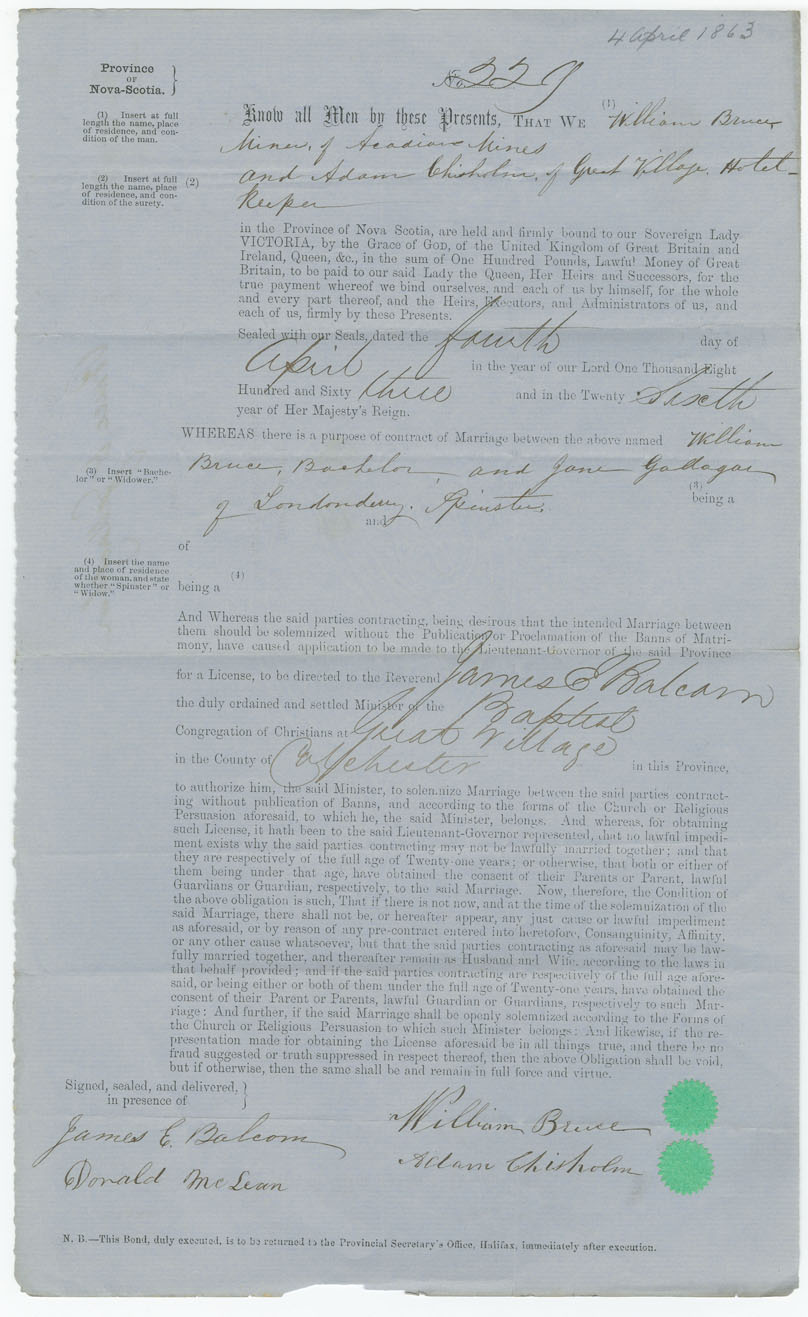 4 April 1863
Province
OF
Nova-Scotia.
No. 229
(1) Insert at full
length the name, place
of residence, and con-
dition of the man.
Know all Men by these Presents, THAT WE (1) William Bruce,
Miner, of Acadian Mines
(2) Insert at full
length the name, place
of residence, and con-
dition of the surety.
(2) and Adam Chisholm, of Great Village, Hotel-
Keeper
in the Province of Nova Scotia, are held and firmly bound to our Sovereign Lady
VICTORIA, by the Grace of GOD, of the United Kingdom of Great Britain and
Ireland, Queen, &c., in the sum of One Hundred Pounds, Lawful Money of Great
Britain, to be paid to our said Lady the Queen, Her Heirs and Successors, for the
true payment whereof we bind ourselves, and each of us by himself, for the whole
and every part thereof, and the Heirs, Executors, and Administrators of us, and
each of us, firmly by these Presents.
Sealed with our Seals, dated the fourth day of
April in the year of our Lord One Thousand Eight
Hundred and Sixty three and in the Twenty Sixth
year of Her Majesty's Reign.
WHEREAS there is a purpose of contract of Marriage between the above named William
(3) Insert "Bache-
lor" or "Widower."
Bruce, Bachelor, and Jane
(3)
being a
of Londonderry. Spinster.
and
of
(4) Insert the name
and place of residence
of the woman, and state
whether "Spinster" or
"Widow."
(4)
being a
And Whereas the said parties contracting, being desirous that the intended Marriage between
them should be solemnized without the Publication or Proclamation of the Banns of Matri-
mony, have caused application to be made to the Lieutenant-Governor of the said Province
for a License, to be directed to the Reverend James E Balcom
the duly ordained and settled Minister of the Baptist
Congregation of Christians at Great Village
in the County of Colchester in this Province,
to authorize him, the said Minister, to solemnize Marriage between the said parties contract-
ing without publication of Banns, and according to the forms of the Church or Religious
Persuasion aforesaid, to which he, the said Minister, belongs. And whereas, for obtaining
such License, it hath been to the said Lieutenant-Governor represented, that no lawful impedi-
ment exists why the said parties contracting may not be lawfully married together; and that
they are respectively of the full age of Twenty-one years; or otherwise, that both or either of
them being under that age, have obtained the consent of their Parents or Parent, lawful
Guardians or Guardian, respectively, to the said Marriage. Now, therefore, the Condition of
the above obligation is such, That if there is not now, and at the time of the solemnization of the
said Marriage, there shall not be, or hereafter appear, any just cause or lawful impediment
as aforesaid, or by reason of any pre-contract entered into heretofore, Consanguinity, Affinity,
or any other cause whatsoever, but that the said parties contracting as aforesaid may be law-
fully married together, and thereafter remain as Husband and Wife, according to the laws in
that behalf provided; and if the said parties contracting are respectively of the full age afore-
said, or being either or both of them under the full age of Twenty-one years, have obtained the
consent of their Parent or Parents, lawful Guardian or Guardians, respectively to such Mar-
riage: And further, if the said Marriage shall be openly solemnized according to the Forms of
the Church or Religious Persuasion to which such Minister belongs: And likewise, if the re-
presentation made for obtaining the License aforesaid be in all things true, and there be no
fraud suggested or truth suppressed in respect thereof, then the above Obligation shall be void,
but if otherwise, then the same shall be and remain in full force and virtue.
Signed, sealed, and delivered,
in presence of
James E. Balcom
Donald McLean
William Bruce
Adam Chisholm
N. B.—This Bond, duly executed, is to be returned to the Provincial Secretary's Office, Halifax, immediately after execution.